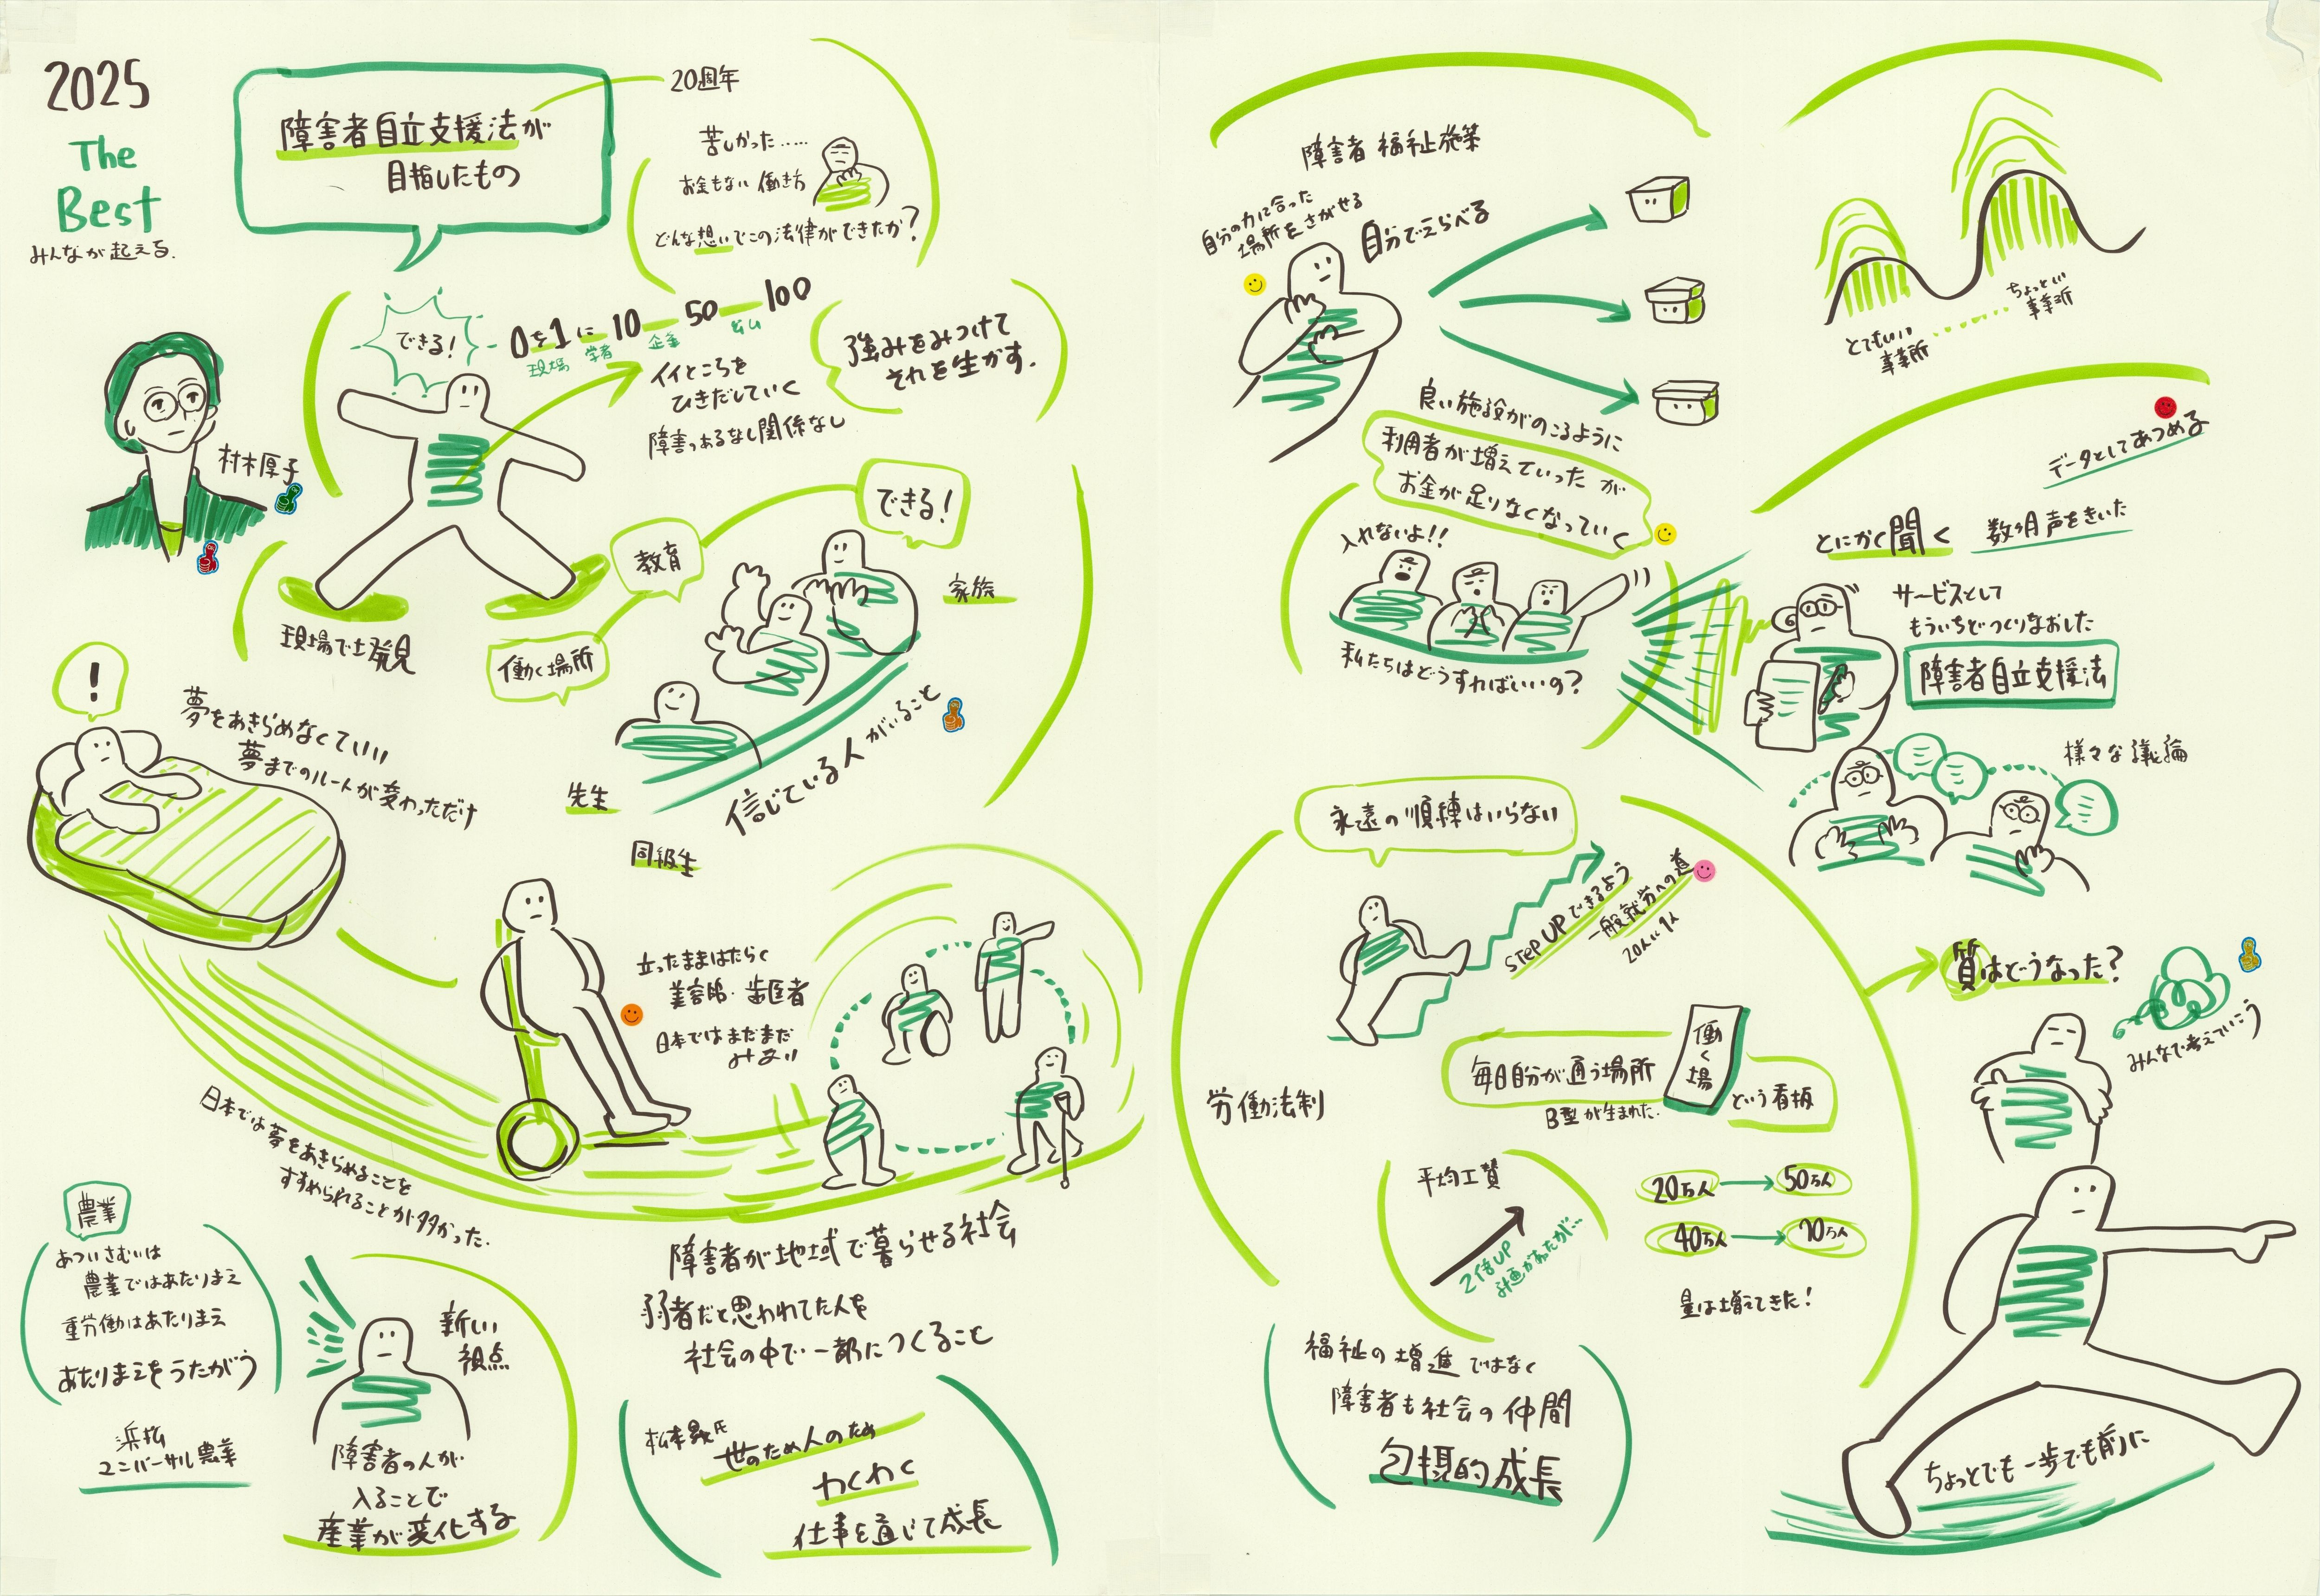 2025
The
Best
みんなが起える.
障害者自立支援法が
目指したもの
20周年
苦しかった……
お金もない 働き方
どんな想いでこの法律ができたか?
村木厚子
できる!
0を1に 10 50 100
現場 学者 企業
イイところを
ひきだしていく
障害のあるなし関係なし
強みをみつけて
それを生かす.
現場で発見
できる!
教育
働く場所
家族
先生
同級生
信じている人がいること
!
夢をあきらめなくていい
夢までのルートが変わっただけ
立ったままはたらく
美容師・歯医者
日本ではまだまだ
みない
日本では夢をあきらめることを
すすめられることが多かった.
農業
あついさむいは
農業ではあたりまえ
重労働はあたりまえ
あたりまえをうたがう
浜松
ユニバーサル農業
新しい
視点
障害者の人が
入ることで
産業が変化する
障害者が地域で暮らせる社会
弱者だと思われてた人を
社会の中で一部につくること
世のため人のため
わくわく
仕事を通じて成長
障害者福祉施策
自分の力に合った
場所をさがせる
自分でえらべる
良い施設がのこるように
利用者が増えていったが
お金が足りなくなっていく
入れないよ!!
私たちはどうすればいいの?
とてもいい
事業所
ちょっといい
事業所
データとしてあつめる
とにかく聞く 数ヶ月声をきいた
サービスとして
もういちどつくりなおした
障害者自立支援法
様々な議論
永遠の順練はいらない
STEP UPできるよう
一般就労への道
20人に1人
労働法制
毎日自分が通う場所
働く場
という看板
B型が生まれた.
平均工賃
2倍UP
計画があったが…
20万人 50万人
40万人 70万人
量は増えてきた!
質はどうなった?
みんなで考えていこう
福祉の増進ではなく
障害者も社会の仲間
包摂的成長
ちょっとでも一歩でも前に